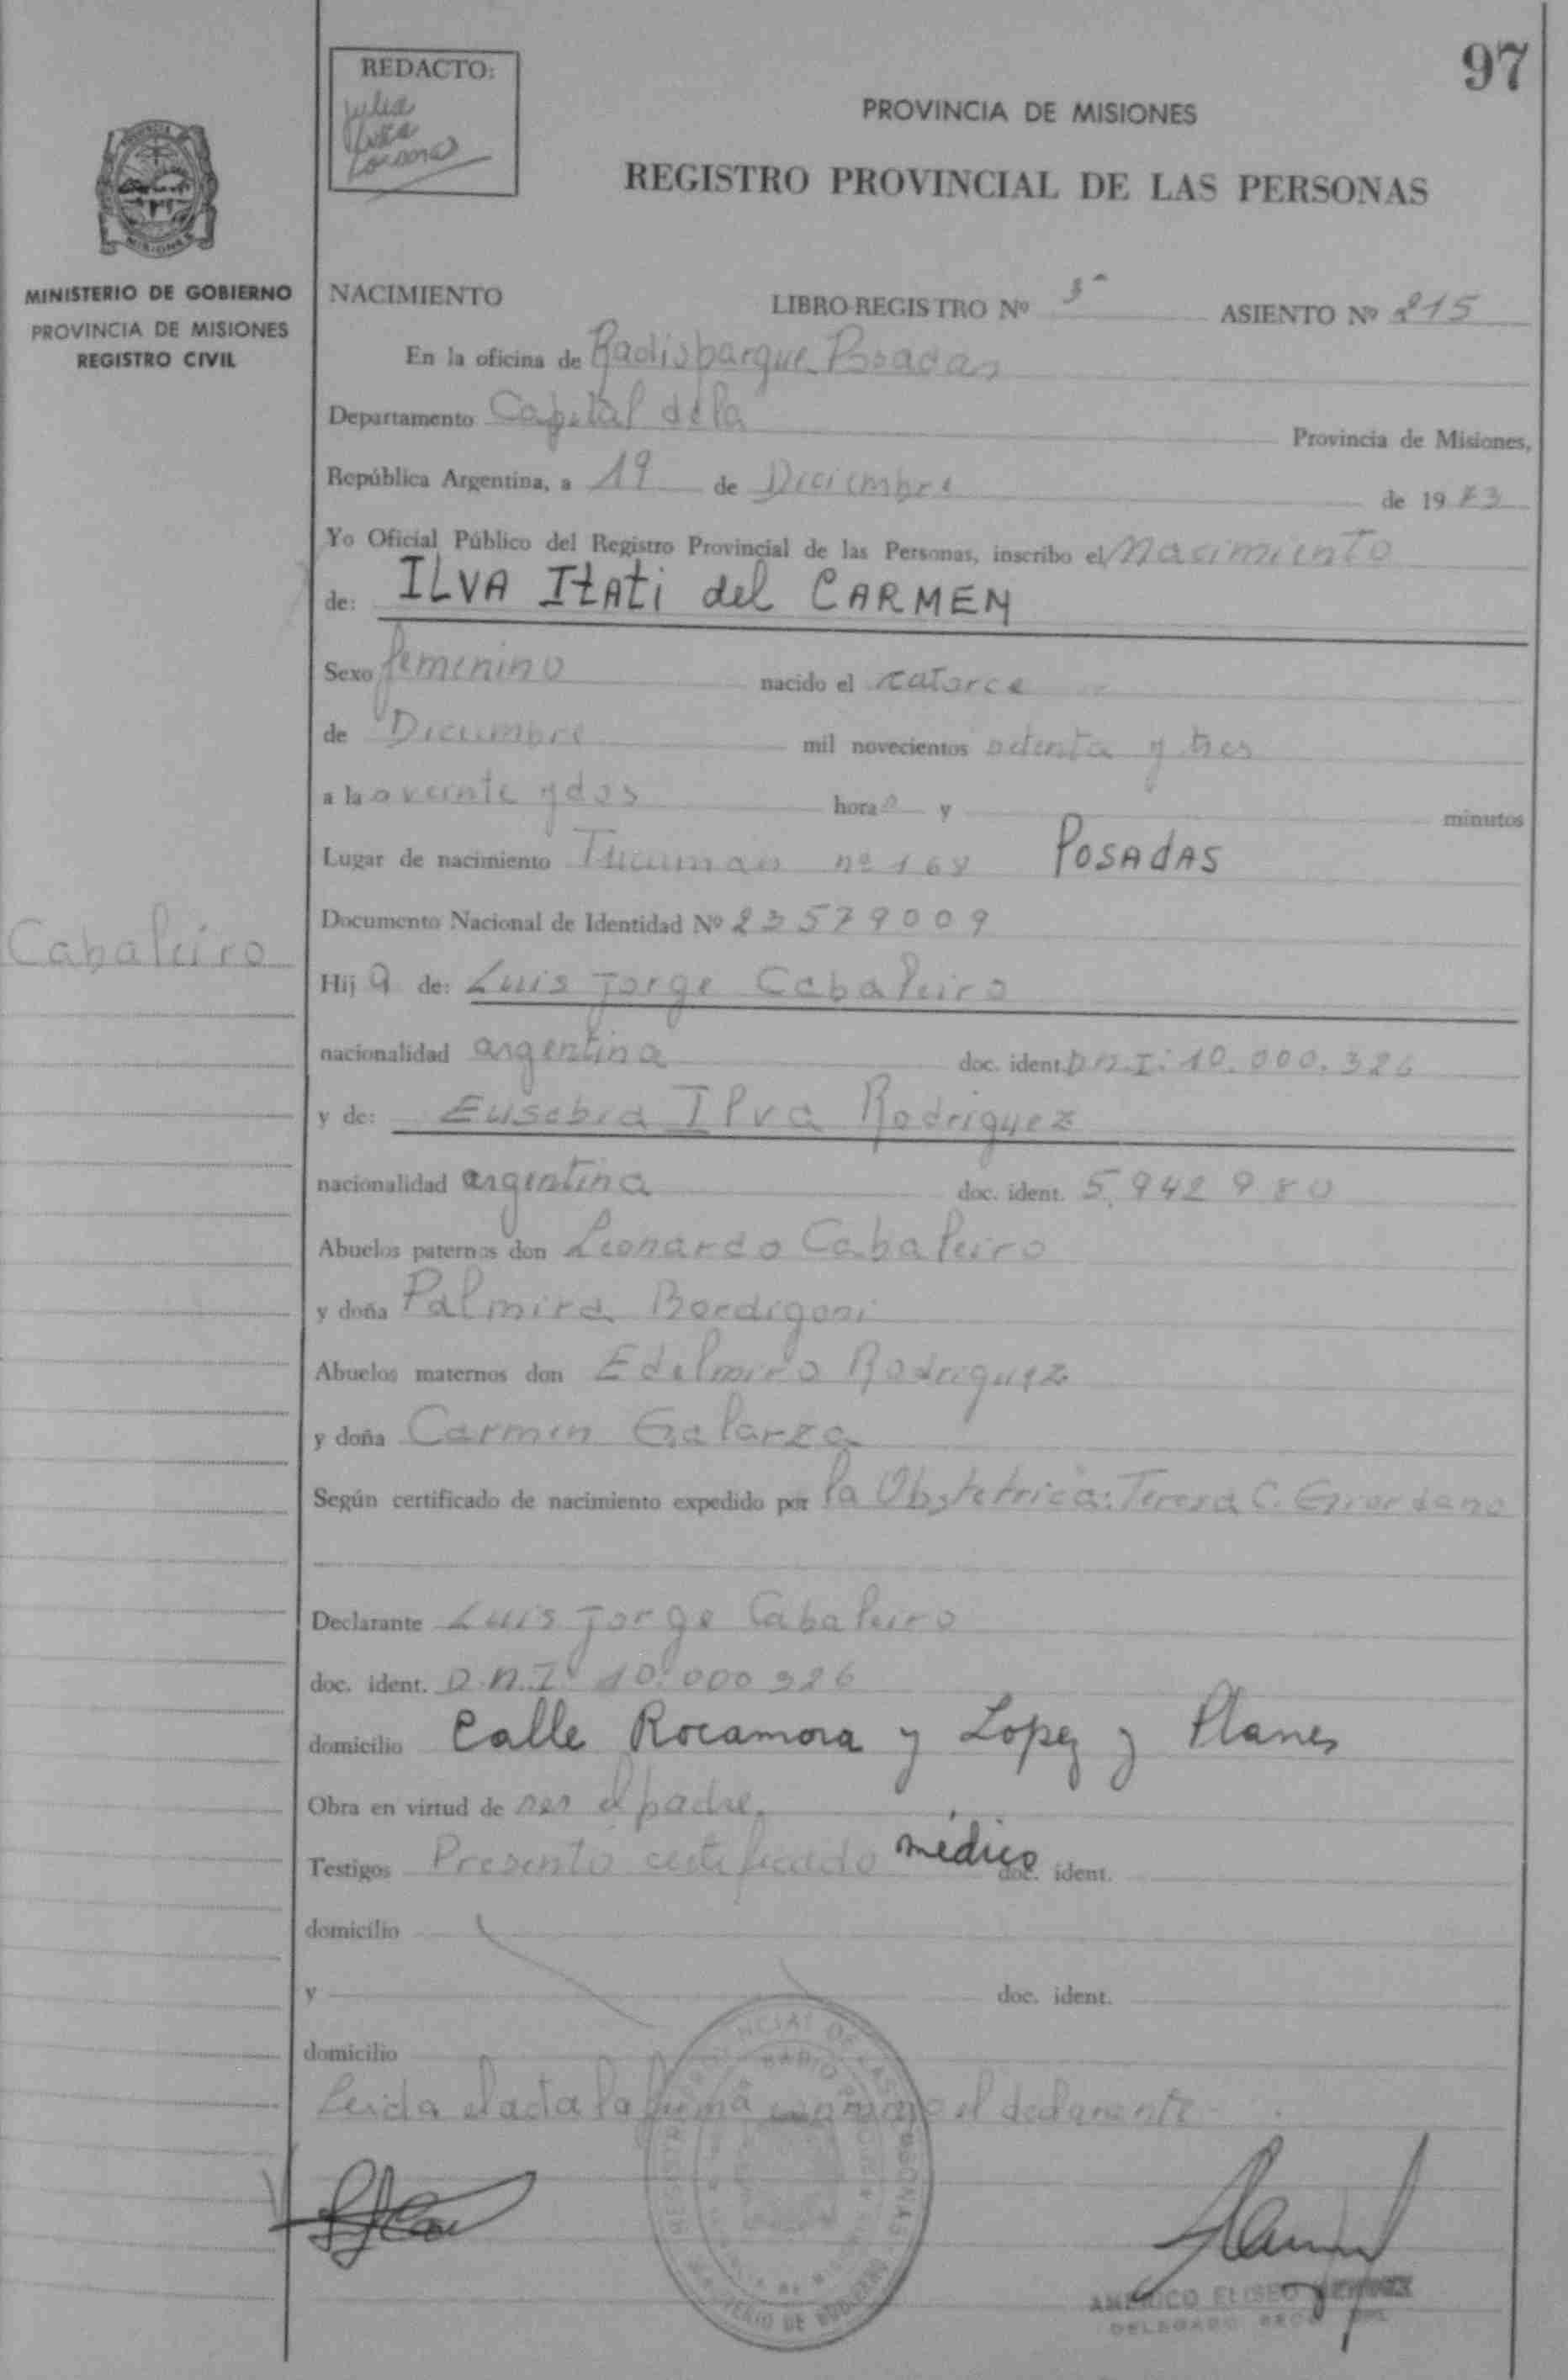 97
REDACTO:
Julia
PROVINCIA DE MISIONES
REGISTRO PROVINCIAL DE LAS PERSONAS
MISIONES
MINISTERIO DE GOBIERNO
PROVINCIA DE MISIONES
REGISTRO CIVIL
NACIMIENTO LIBRO-REGISTRO Nº 3º ASIENTO Nº 215
En la oficina de Radioparque Posadas
Departamento Capital de la Provincia de Misiones,
República Argentina, a 19 de Diciembre de 1973
Yo Oficial Público del Registro Provincial de las Personas, inscribo el Nacimiento
de: ILVA Itati del CARMEN
Sexo femenino nacido el catorce
de Diciembre mil novecientos setenta y tres
a las veinte y dos horas y minutos
Lugar de nacimiento Tucuman nº 168 POSADAS
Documento Nacional de Identidad Nº 23579009
Cabaleiro
Hija de: Luis Jorge Cabaleiro
nacionalidad argentina doc. ident. D.N.I: 10.000.326
y de: Eusebia Ilva Rodriguez
nacionalidad argentina doc. ident. 5.942980
Abuelos paternos don Leonardo Cabaleiro
y doña Palmira Bordigoni
Abuelos maternos don Edelmiro Rodriguez
y doña Carmen Galarza
Según certificado de nacimiento expedido por la Obstetrica: Teresa C. Giordano
Declarante Luis Jorge Cabaleiro
doc. ident. D.N.I. 10.000326
domicilio Calle Rocamora y Lopez y Planes
Obra en virtud de ser el padre.
Testigos Presentó certificado médico doc. ident.
domicilio
y doc. ident.
domicilio
Leida el acta la firma conmigo el declarante.
AMERICO ELISEO
DELEGADO
MINISTERIO DE GOBIERNO